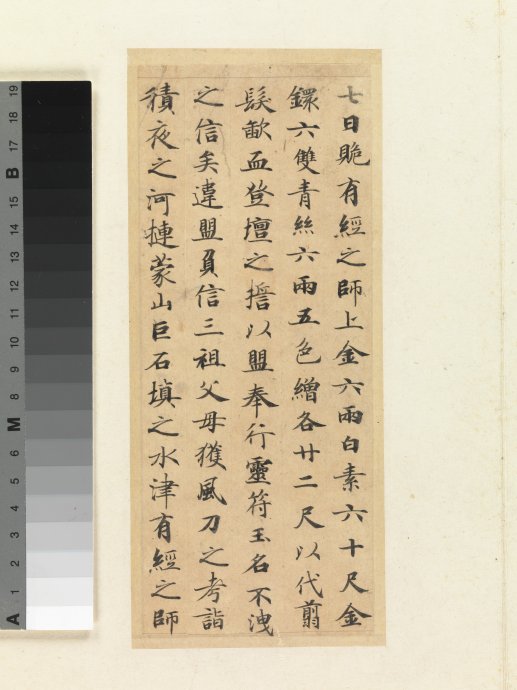 七日䞈有經之師上金六兩白素六十尺金
鐶六雙青絲六兩五色繒各廿二尺以代翦
髮歃血登壇之誓以盟奉行靈符玉名不洩
之信矣違盟負信三祖父母獲風刀之考詣
積夜之河摙蒙山巨石填之水津有經之師
A 1 2 3 4 5 6 M 8 9 10 11 12 13 14 15 B 17 18 19